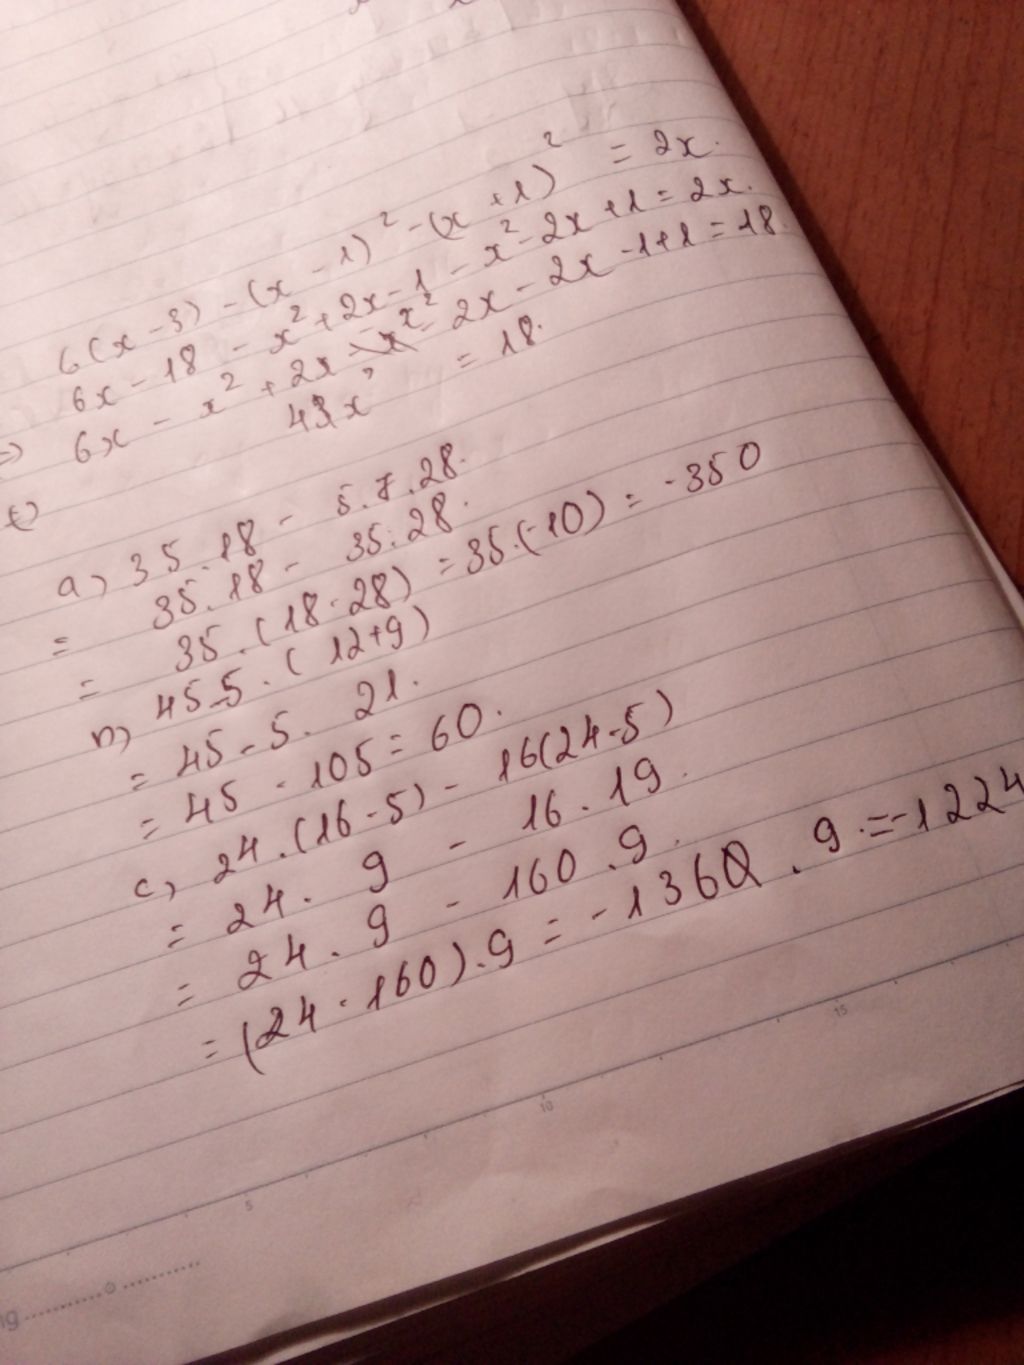 6(x - 3) - (x - 1)² - (x + 1)² = 2x.
6x - 18 - x² + 2x - 1 - x² - 2x + 1 = 2x.
=) 6x - x² + 2x - x² - 2x - 2x - 1 + 1 = 18.
x = 18.
a) 35.18 - 5.7.28.
= 35.18 - 35.28.
= 35.(18-28) = 35.(-10) = -350
b) 45-5.(12+9)
= 45-5.21.
= 45-105=60.
c) 24.(16-5) - 16(24-5)
= 24.9 - 16.19.
= 24.9 - 160.9.
= (24-160).9 = -1360.9.=-1224
5
10
15